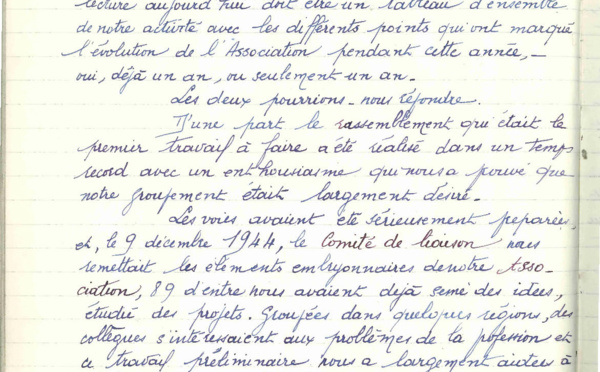 lecture aujourd'hui doit être un tableau d'ensemble
de notre activité avec les différents points qui ont marqué
l'évolution de l'Association pendant cette année, -
oui, déjà un an, ou seulement un an -
Les deux pourrions-nous répondre.
D'une part le rassemblement qui était le
premier travail à faire a été réalisé dans un temps
record avec un enthousiasme qui nous a prouvé que
notre groupement était largement désiré -
Les voies avaient été sérieusement peparées,
et, le 9 décembre 1944, le Comité de liaison nous
remettait les éléments embryonnaires de notre Asso-
ciation, 89 d'entre nous avaient déjà semé des idées,
étudié des projets. Groupées dans quelques régions, des
collègues s'intéressaient aux problèmes de la profession et
ce travail préliminaire nous a largement aidées à